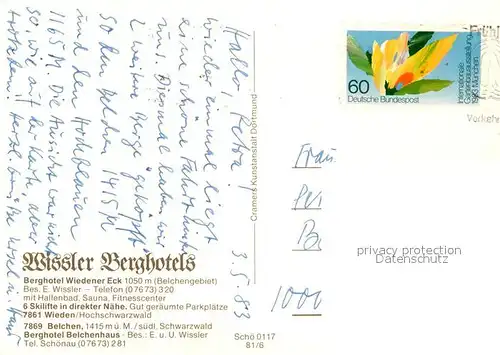 Hallo, Petra!
3.5.83
Wieder einmal liegt
eine schöne Fahrt hinter
uns. Diesmal haben wir
2 weitere Berge "geköpft"
So den Belchen 1415 M
und den Hochblauen
1165 M. Die Aussicht war nicht
so, wie auf der Karte, aber
trotzdem herzl. Grüße
Wissler Berghotels
Berghotel Wiedener Eck 1050 m (Belchengebiet)
Bes. E. Wissler – Telefon (07673) 320
mit Hallenbad, Sauna, Fitnesscenter
6 Skilifte in direkter Nähe. Gut geräumte Parkplätze
7861 Wieden/Hochschwarzwald
7869 Belchen, 1415 m ü. M. / südl. Schwarzwald
Berghotel Belchenhaus · Bes.: E. u. U. Wissler
Tel. Schönau (07673) 281
Schö 0117
81/6
Cramers Kunstanstalt Dortmund
60
Deutsche Bundespost
Internationale
Gartenbauausstellung
1983 München
Früh
Verkeh
Frau
Pe
B
1000
privacy protection
for AKPool.de